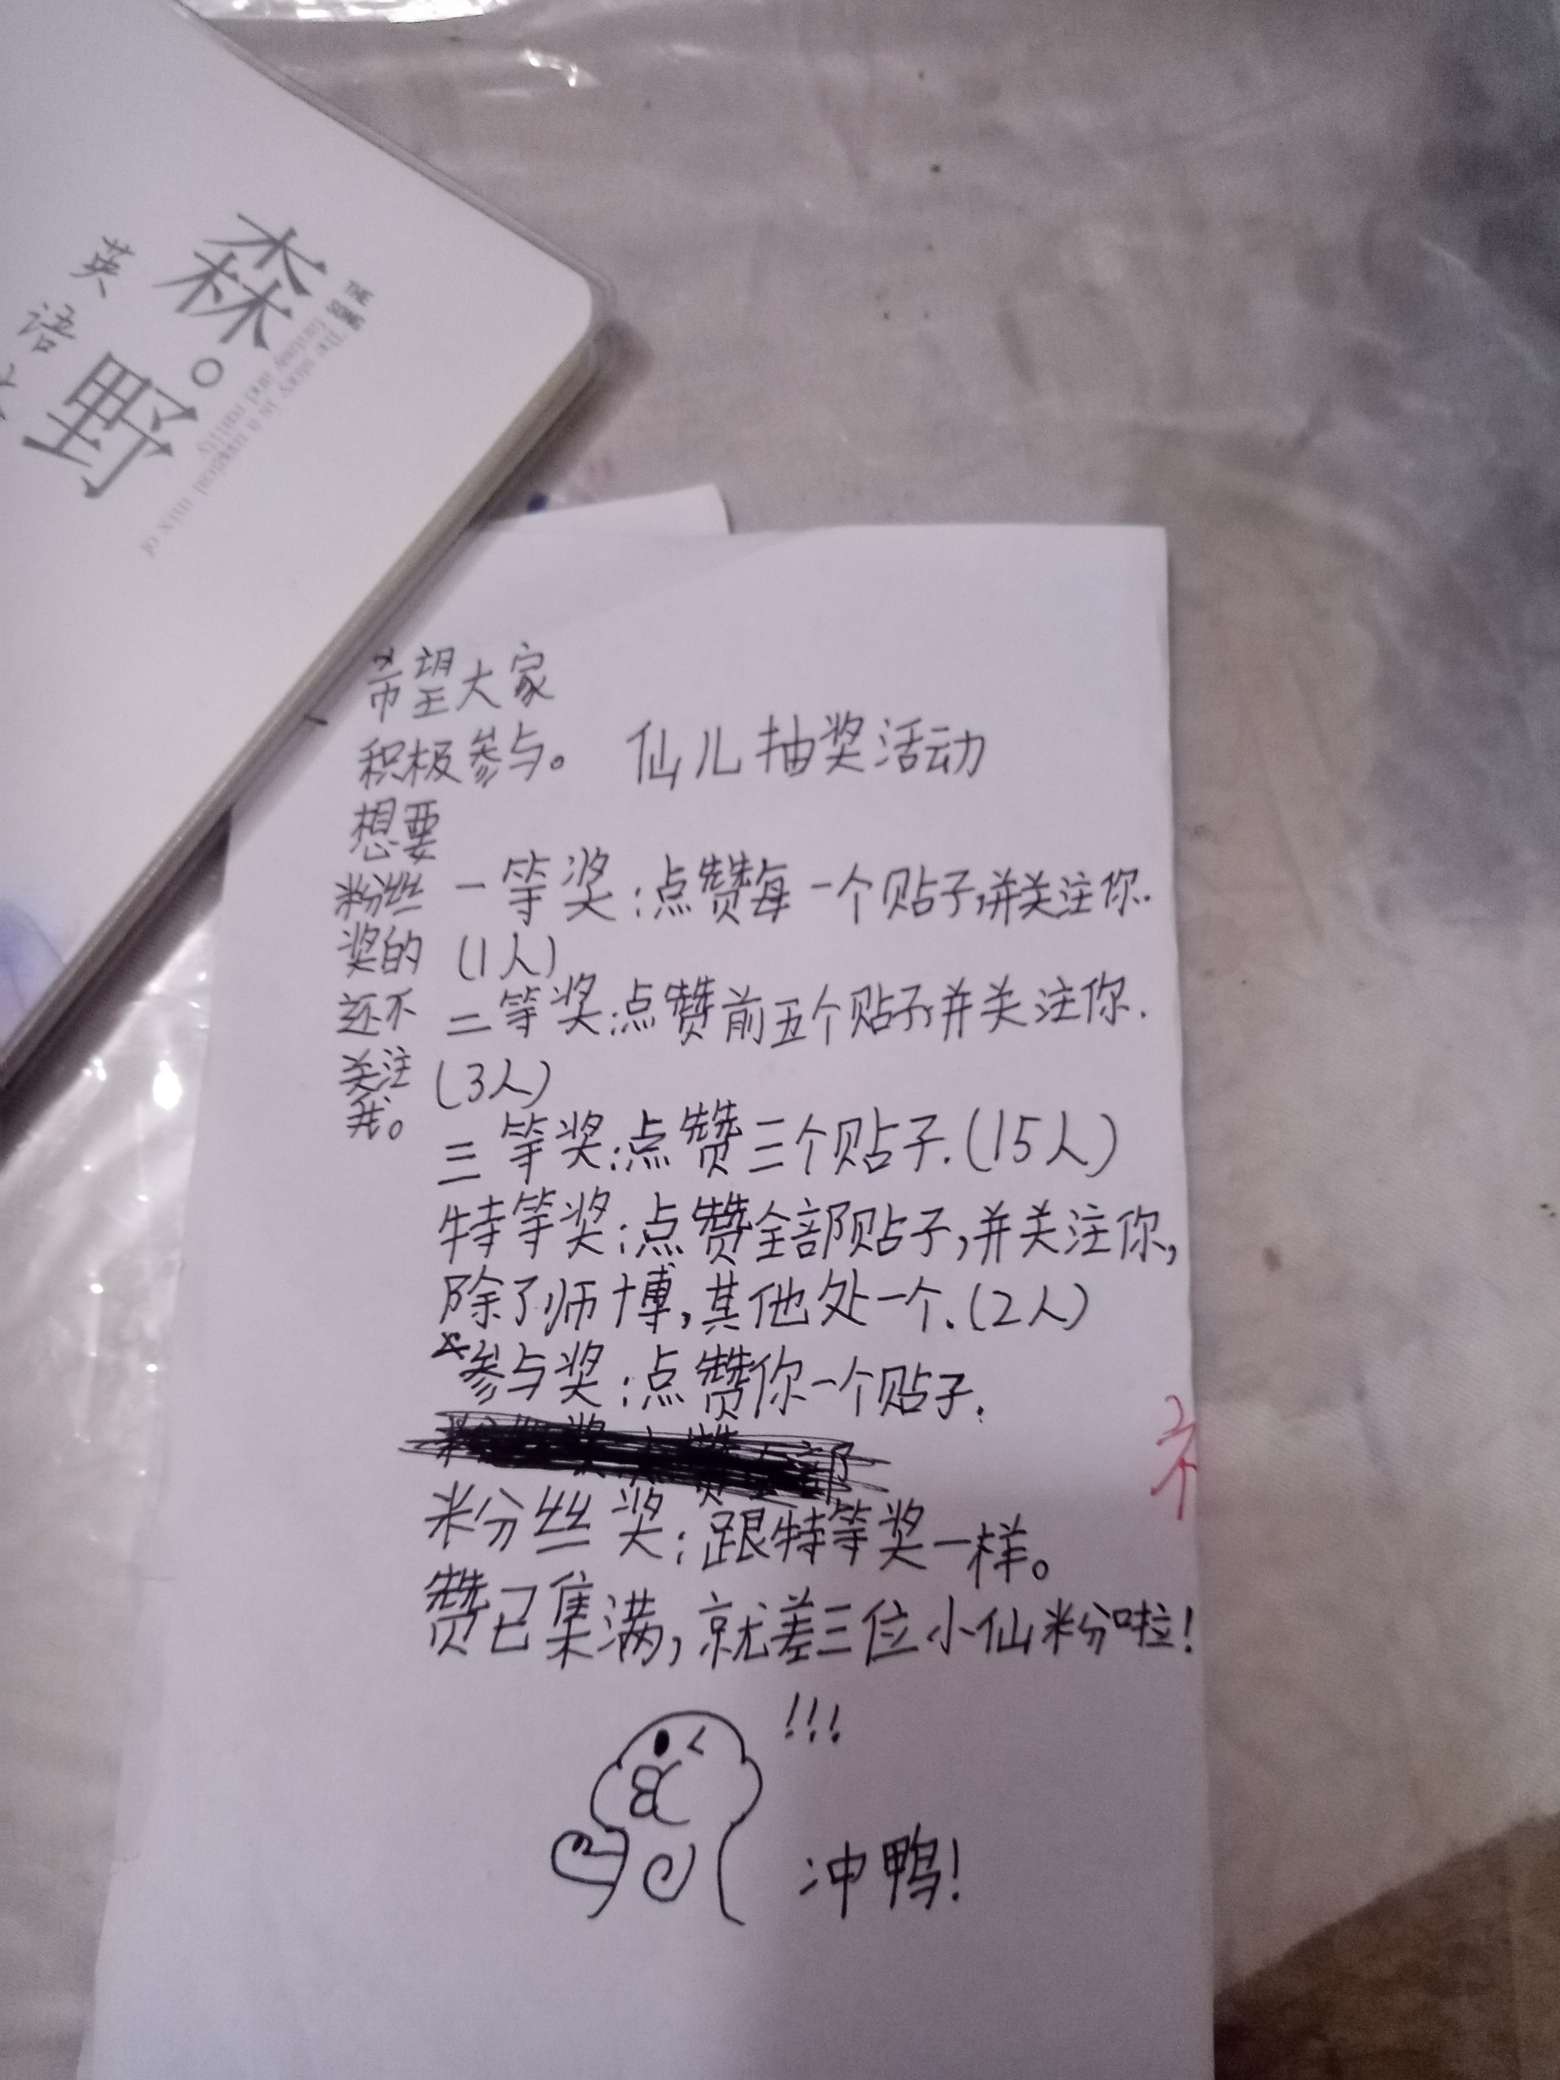 森。野
英语
The story in a magical mix of
fantasy and reality
希望大家
积极参与。
想要
粉丝
奖的
还不
关注
我。
仙儿抽奖活动
一等奖:点赞每一个贴子,并关注你.
(1人)
二等奖:点赞前五个贴子,并关注你.
(3人)
三等奖:点赞三个贴子.(15人)
特等奖:点赞全部贴子,并关注你,
除了师博,其他处一个.(2人)
参与奖:点赞你一个贴子.
粉丝奖:跟特等奖一样。
赞已集满,就差三位小仙粉啦!
!!!
冲鸭!